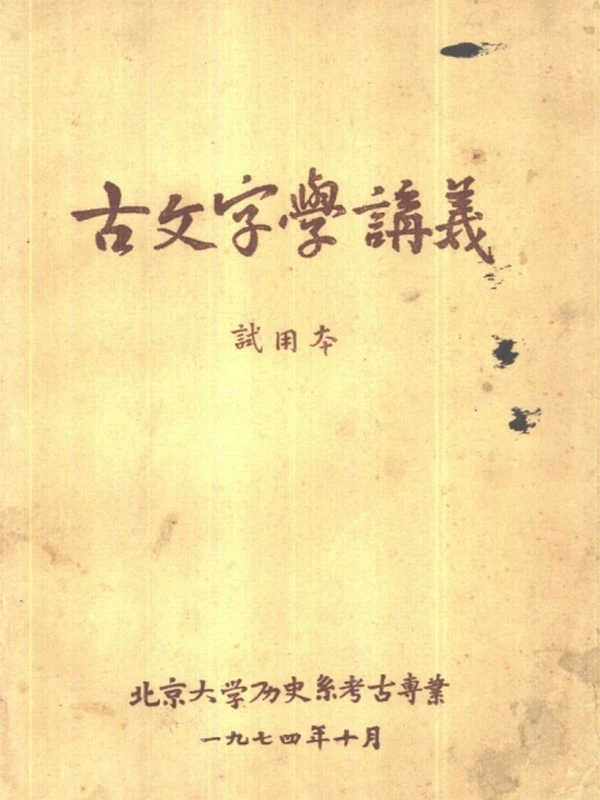 古文字學講義
試用本
北京大学历史系考古專業
一九七四年十月